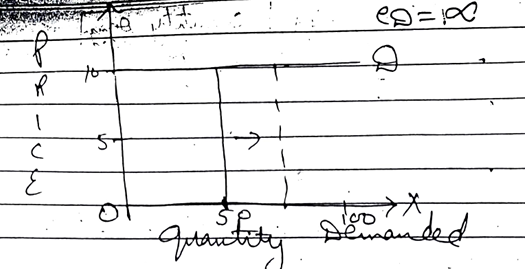 eD=∞
P R I C E
10 D
5
O 50 100 X
Quantity Demanded